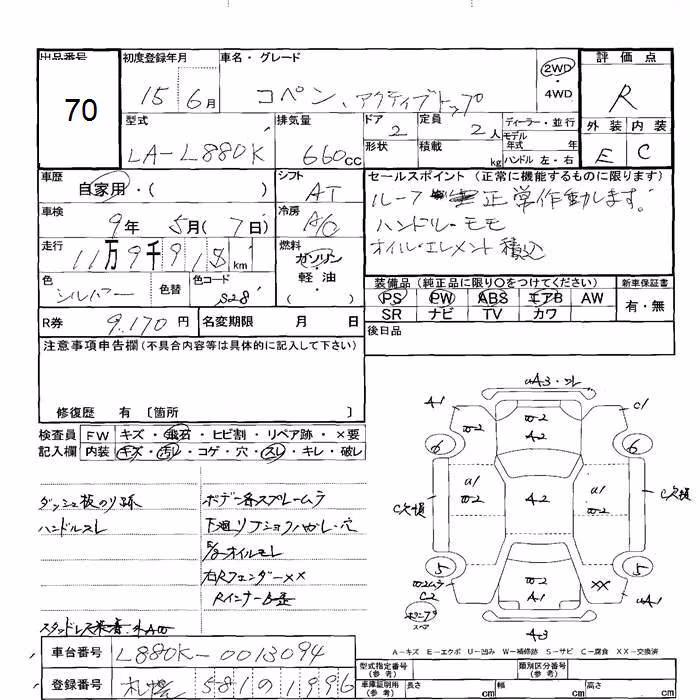 出品番号 初度登録年月 車名・グレード 2WD 評価点
70 15 6月 コペン、アクティブトップ 4WD R
型式 排気量 ドア 定員 ディーラー・並行 外装 内装
LA-L880K 660cc 2 2人 モデル年式 年式 E C
形状 積載 kg ハンドル 左・右
車歴 シフト セールスポイント(正常に機能するものに限ります)
自家用・( ) AT ルーフ 正常作動します。
車検 冷房 ハンドル・モモ
9年 5月(7日) A/C オイル・エレメント積込
走行 燃料
11万9千918km ガソリン・軽油
( ・ )
色 シルバー 色替 色コード S28
装備品(純正品に限り〇をつけてください) 新車保証書
PS PW ABS エアB AW 有・無
SR ナビ TV カワ
R券 9,170円 名変期限 月 日 後日品
注意事項申告欄(不具合内容等は具体的に記入して下さい)
修復歴 有〔箇所 〕
検査員 FW キズ・飛石・ヒビ割・リペア跡・×要
記入欄 内装 キズ・汚レ・コゲ・穴・スレ・キレ・破レ
ダッシュ板のり跡
ハンドルスレ
ボデー各スプレームラ
オイルモレ
右Rフェンダー××
Rインナー
スタッドレス装着
A3・ワレ
A1 W2 W2 C1
A2
6 6
U1 W2 A2 U1 W2
C欠損 C欠損
5 5
W2ムラ W2 XX UA1
C2 A1
スペア
A3
A-キズ E-エクボ U-凹み W-補修跡 S-サビ C-腐食 XX-交換済
車台番号 L880K-0013094
登録番号 札幌 581 0 1996
型式指定番号(参考) 類別区分番号(参考)
車庫証明用(参考) 長さ cm 幅 cm 高さ cm